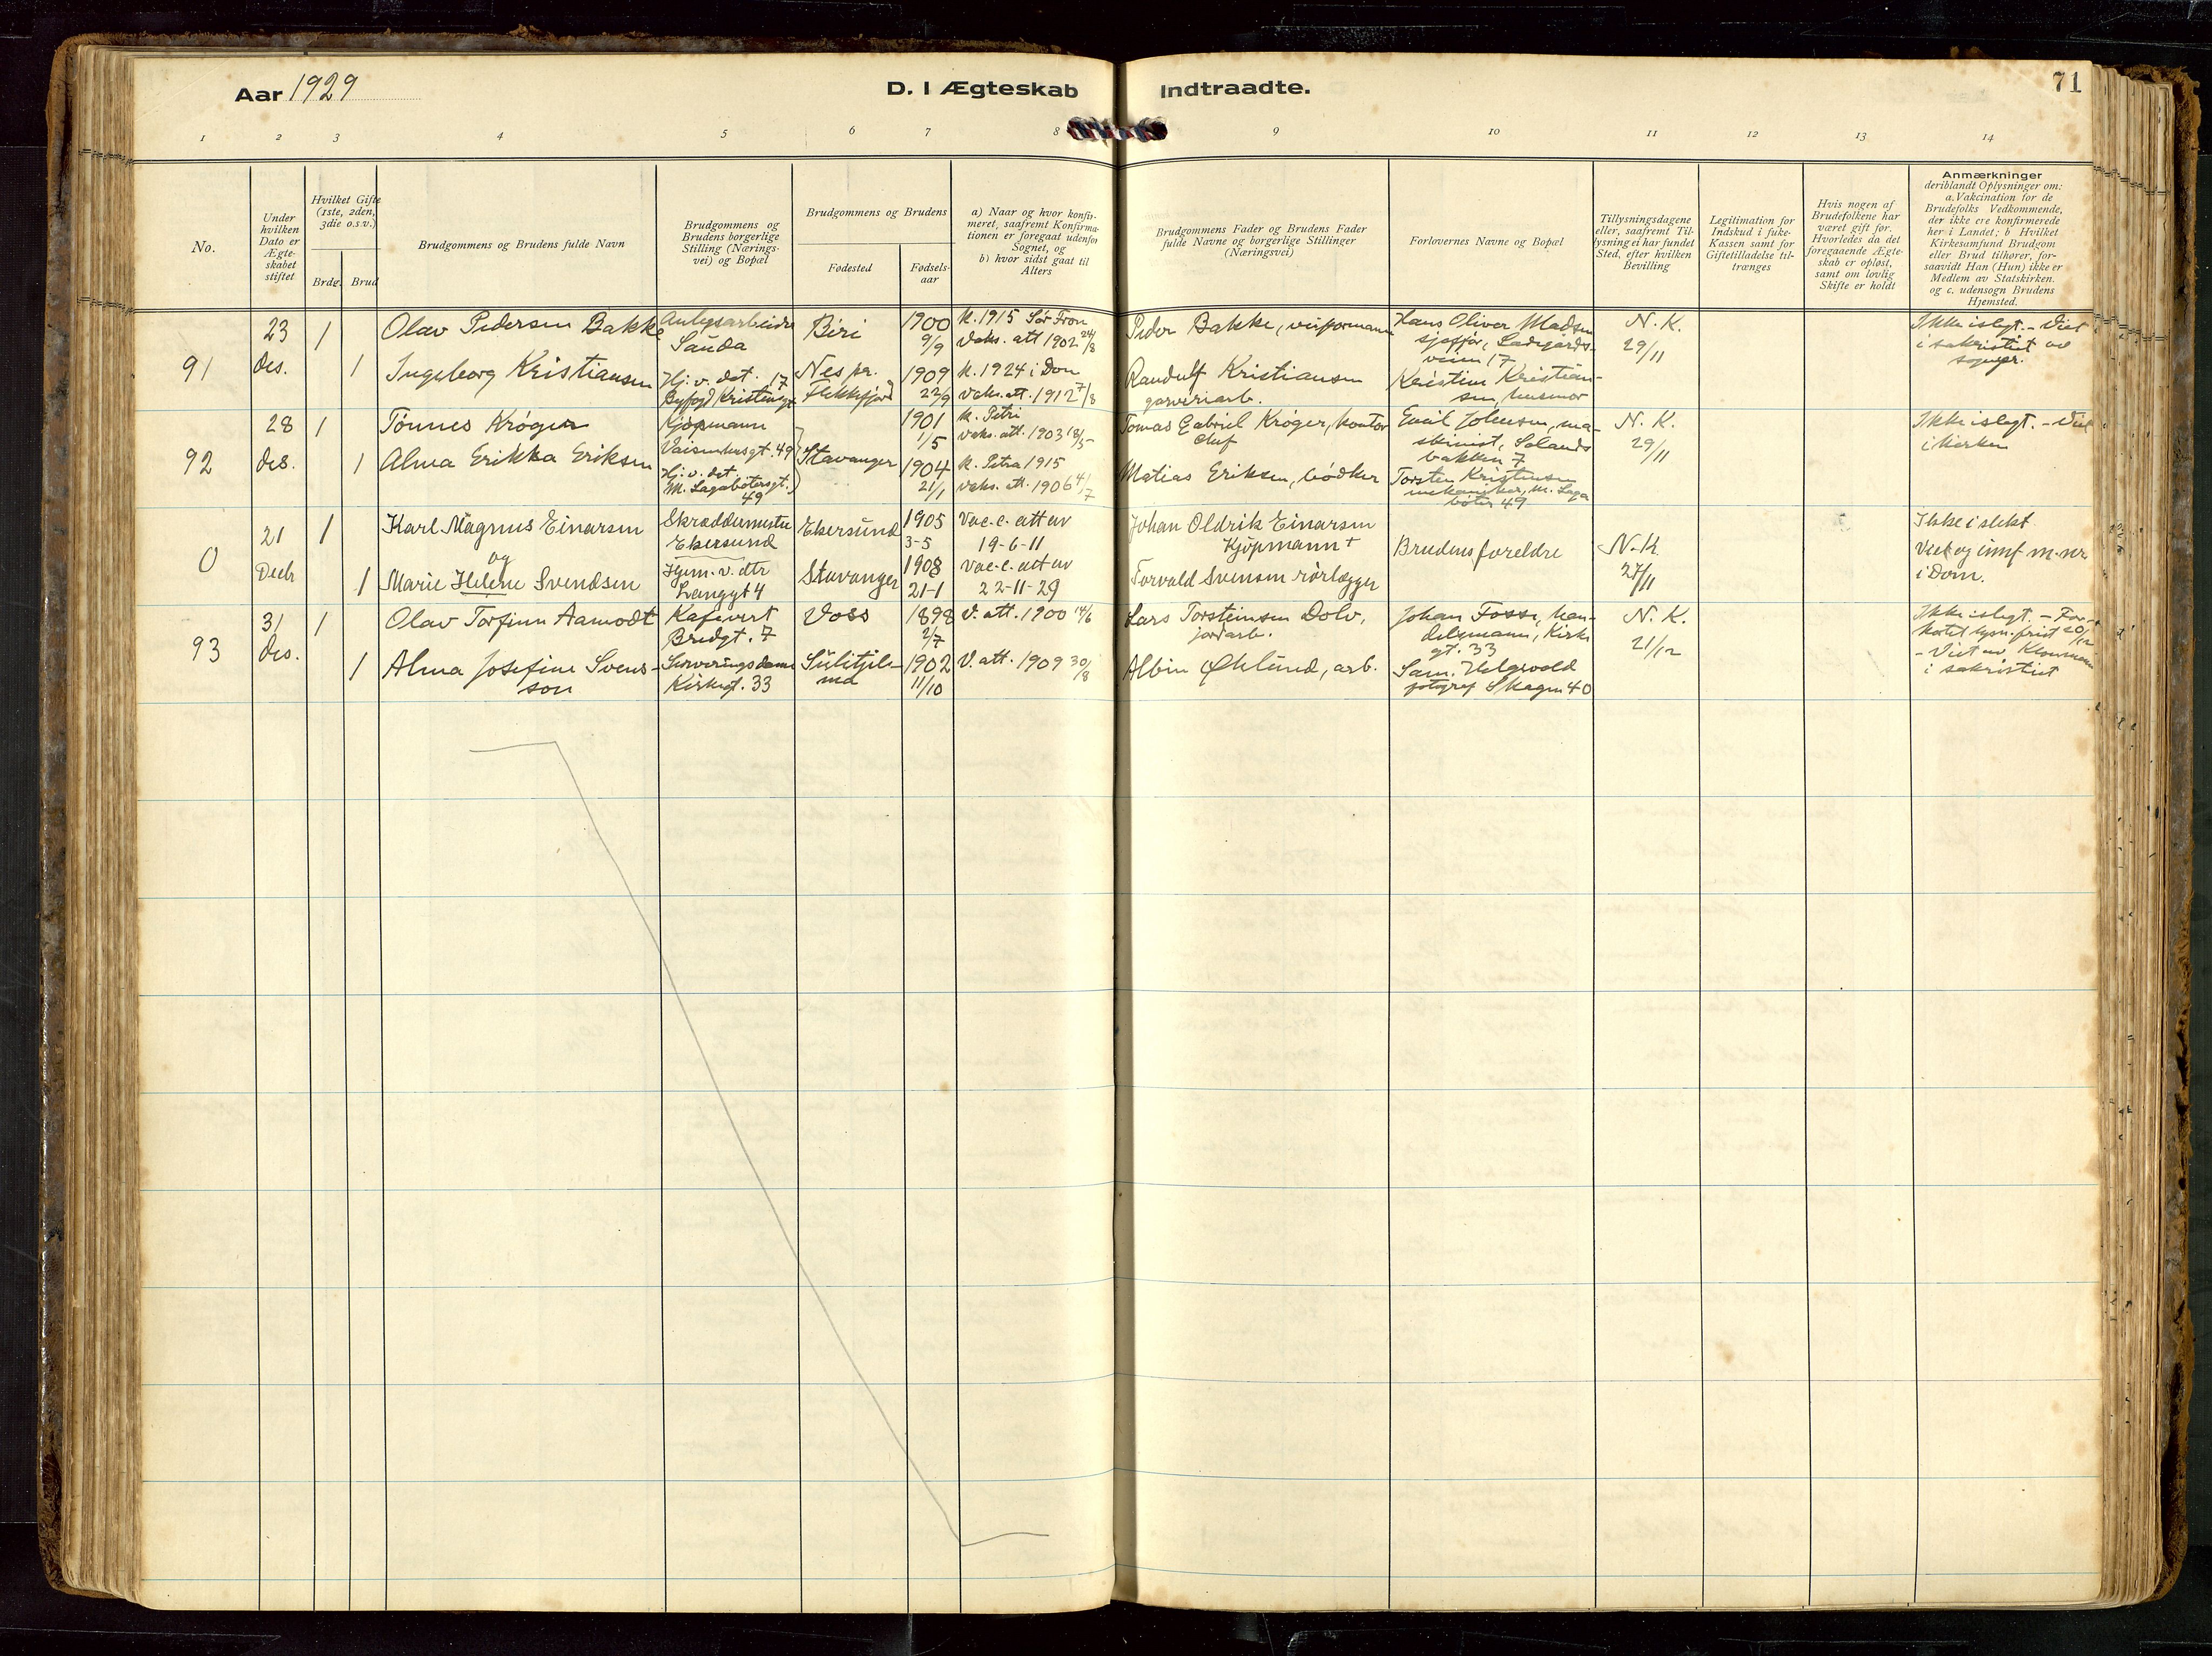 Aar 1929
D. I Ægteskab Indtraadte.
71
1 2 3 4 5 6 7 8 9 10 11 12 13 14
No.
Under hvilken Dato er Ægte-skabet stiftet
Hvilket Gifte (1ste, 2den, 3die o.s.v.)
Brdg. Brud
Brudgommens og Brudens fulde Navn
Brudgommens og Brudens borgerlige Stilling (Nærings-vei) og Bopæl
Brudgommens og Brudens
Fødested
Fødsels-aar
a) Naar og hvor konfir-meret, saafremt Konfirma-tionen er foregaat udenfor Sognet, og b) hvor sidst gaat til Alters
Brudgommens Fader og Brudens Fader fulde Navne og borgerlige Stillinger (Næringsvei)
Forlovernes Navne og Bopæl
Tillysningsdagene eller, saafremt Til-lysning ei har fundet Sted, efter hvilken Bevilling
Legitimation for Indskud i fuke-Kassen samt for Giftetilladelse til-trænges
Hvis nogen af Brudefolkene har været gift før. Hvorledes da det foregaaende Ægte-skab er opløst, samt om lovlig Skifte er holdt
Anmærkninger deriblandt Oplysninger om: a. Vakcination for de Brudefolks Vedkommende, der ikke ere konfirmerede her i Landet; b Hvilket Kirkesamfund Brudgom eller Brud tilhører, for-saavidt Han (Hun) ikke er Medlem av Statskirken. og c. udensogn Brudens Hjemsted.
91
23 des.
1
Olav Pedersen Bakke
Anlegsarbeider
Sauda
Biri
1900
9/9
k. 1915 Sør Fron
Vaks. att 1902 24/8
Peder Bakke, veiformann
Hans Oliver Madsen
sjåfør, Ladegårds-
veien 17
N. K.
29/11
Ikke i slegt. - Viet
i sakristiet av
sognepr.
1
Ingeborg Kristiansen
Hj. v. det. 17
Nes pr.
Flekkefjord
1909
22/9
k. 1924 i Dom
Vaks. att. 1912 7/8
Randulf Kristiansen
garveriarb.
Kristine Kristian-
sen, husmor
92
28 des.
1
Tønnes Krøger
Kjøpmann
Vaisenhusgt. 49
Stavanger
1901
1/5
k. Petri
Vaks. att. 1903 18/5
Tomas Gabriel Krøger, kontor
chef
Emil Johnsen, ma-
skinist, Solands
bakken 7
N. K.
29/11
Ikke i slegt. - Viet
i kirken
1
Alma Erikka Eriksen
Hj. v. det.
M. Lagabøtersgt.
49
1904
21/1
k. Petra 1915
vaks. att. 1906 4/7
Matias Eriksen, bødker
Torsten Kristensen
mekaniker, M. Laga
bøter 49
0
21 Decbr
1
Karl Magnus Einarsen
og
Skræddermester
Ekersund
Ekersund
1905
3-5
Vac. e. att av
19-6-11
Johan Oldrik Einarsen
Kjøpmann +
Brudens foreldre
N. K.
27/11
Ikke i slekt
Viet og innf. m. nr
i Dom.
1
Marie Helene Svendsen
Hjem. v. dtr
Langgt 4
Stavanger
1908
21-1
Vac. e. att av
22-11-29
Torvald Svensen rørlegger
93
31 des.
1
Olav Torfinn Aamodt
Kafévert
Bredgt. 7
Voss
1898
2/7
V. att. 1900 14/6
Lars Torsteinsen Dolv,
jordarb.
Johan Fosse, han-
delsmann, Kirke
gt. 33
N. K.
21/12
Ikke i slegt. - For-
kortet lysn. frist 20/12
- Viet av Klommann
i sakristiet
1
Alma Josefine Svens-
son
Serveringsdame
Kirkegt. 33
Sulitjel-
ma
1902
11/10
V. att. 1909 30/8
Albin Øklund, arb.
Sam. Helgevold
fotograf Skagen 40